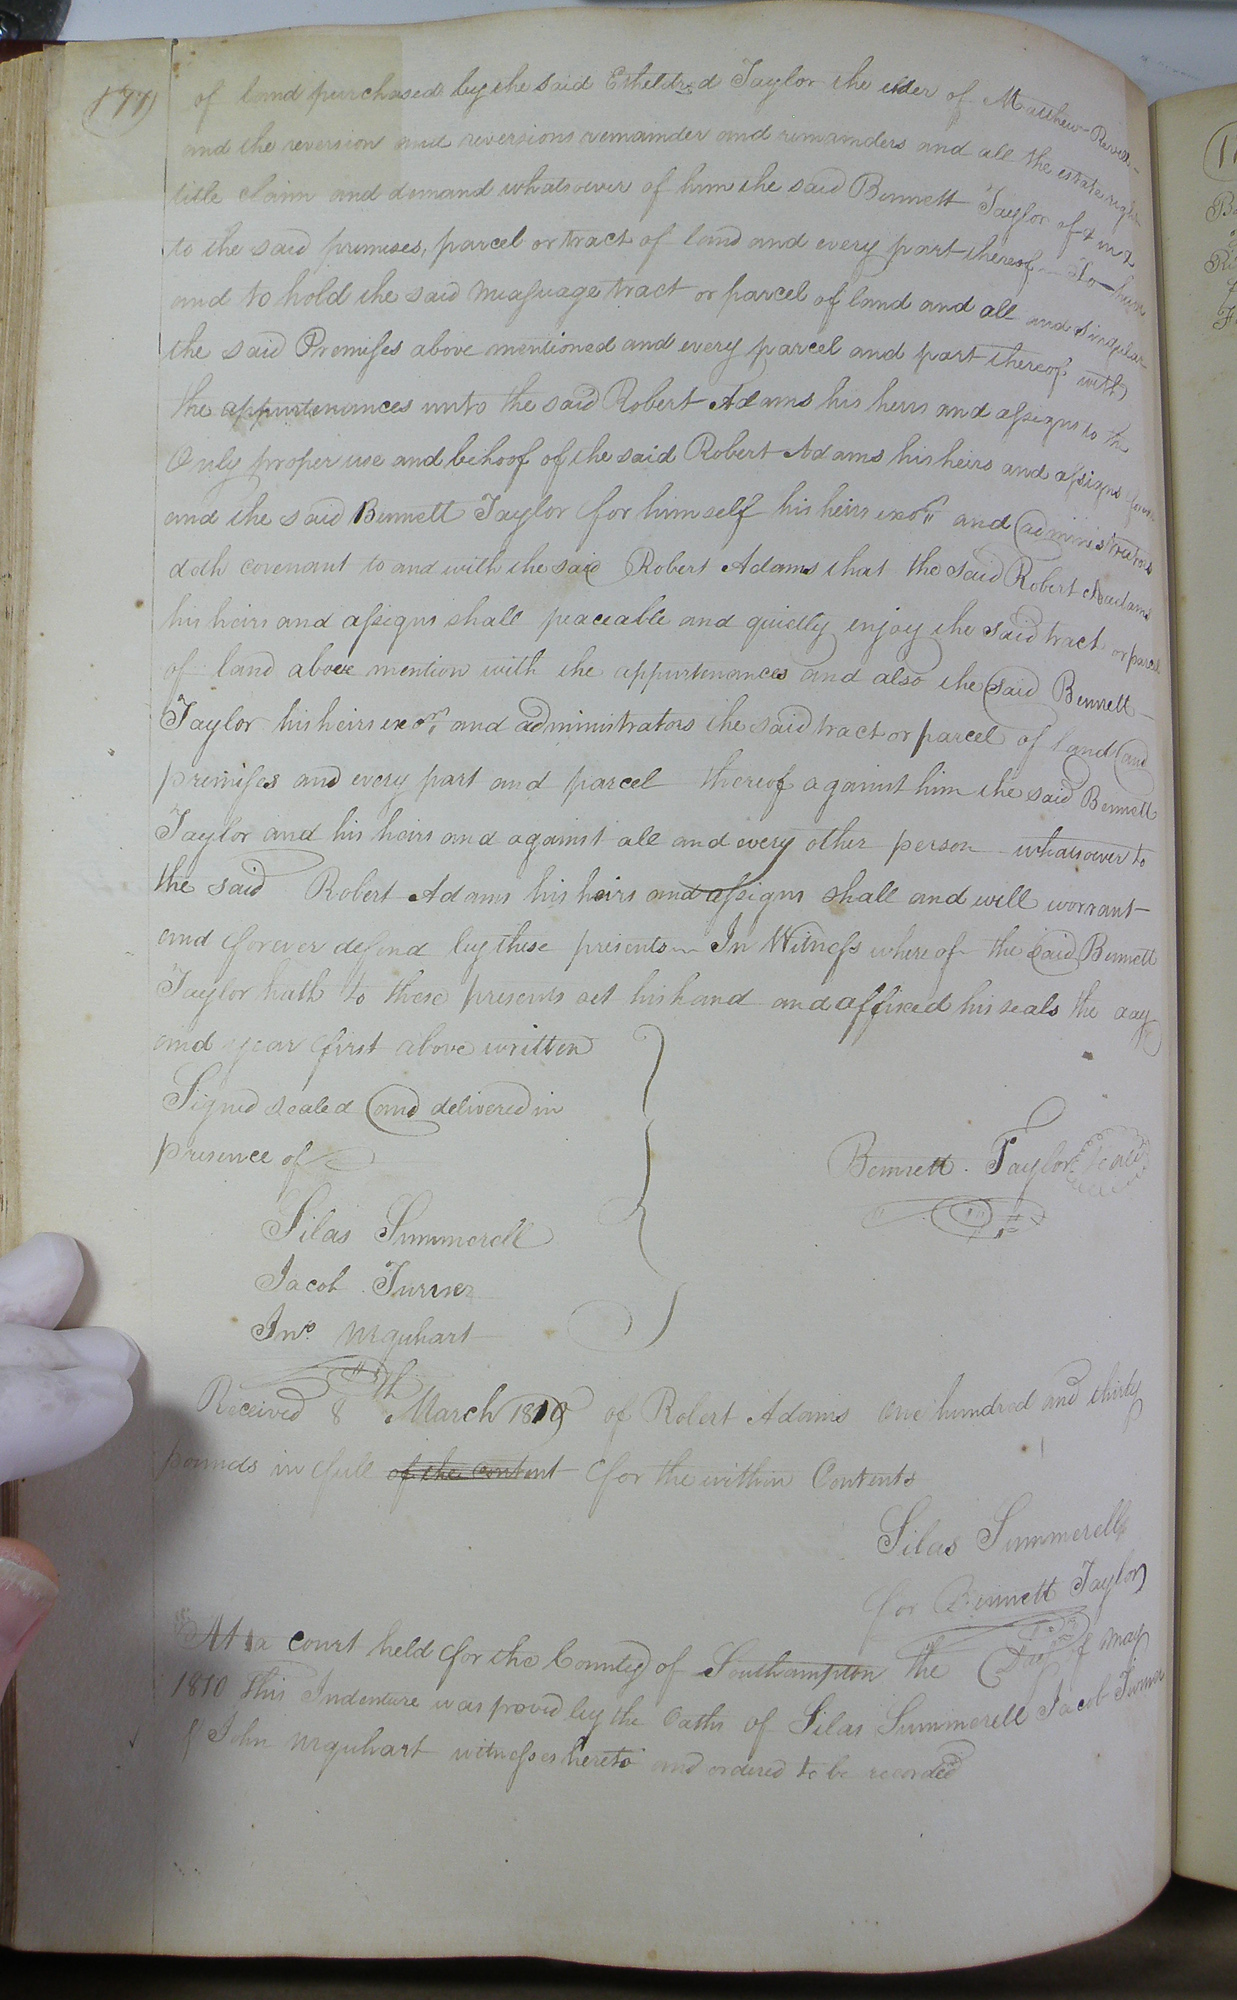 177
of land purchased by the said Etheldred Taylor the elder of Matthew Revell
and the reversion and reversions remainder and remainders and all the estate right
title claim and demand whatsoever of him the said Bennett Taylor of & in &
to the said premises, parcel or tract of land and every part thereof To have
and to hold the said Messuage tract or parcel of land and all and singular
the said Premises above mentioned and every parcel and part thereof with
the appurtenances unto the said Robert Adams his heirs and assigns to the
Only proper use and behoof of the said Robert Adams his heirs and assigns forever
and the said Bennett Taylor for himself his heirs exors and administrators
doth covenant to and with the said Robert Adams that the said Robert Aadams
his heirs and assigns shall peaceable and quietly enjoy the said tract or parcel
of land above mention with the appurtenances and also the said Bennett
Taylor his heirs exors and administrators the said tract or parcel of land and
premises and every part and parcel thereof against him the said Bennett
Taylor and his heirs and against all and every other person whatsoever to
the said Robert Adams his heirs and assigns shall and will warrant
and forever defend by these presents In Witness whereof the said Bennett
Taylor hath to these presents set his hand and affixed his seals the day
and year first above written
Signed sealed and delivered in
presence of
Bennett Taylor seal
Silas Summerell
Jacob Turner
Jno. Urquhart
Received 8th March 1810 of Robert Adams One hundred and thirty
pounds in full of the content for the within Contents
Silas Summerell
for Bennett Taylor
At a court held for the County of Southampton the Day of may
1810 This Indenture was proved by the Oaths of Silas Summerell Jacob Turner
& John Urquhart witnesses hereto and ordered to be recorded